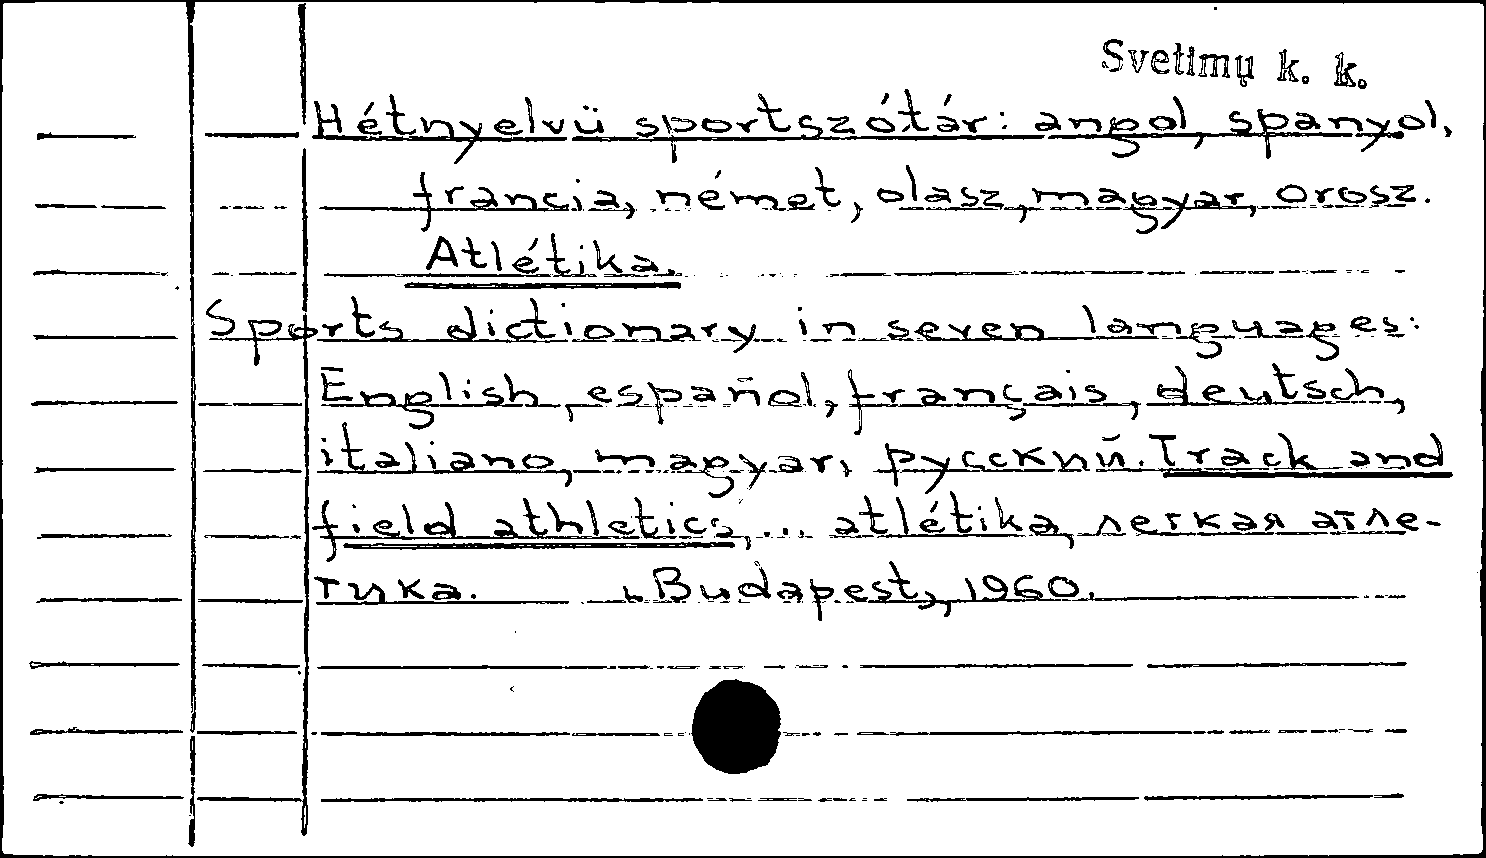 Svetimų k. k.
Hétnyelvü sportszótár: angol, spanyol,
francia, német, olasz, magyar, orosz.
Atlétika.
Sports dictionary in seven languages:
English, español, français, deutsch,
italiano, magyar, русский. Track and
field athletics, ... atlétika, легкая атле-
тика. Budapest, 1960.